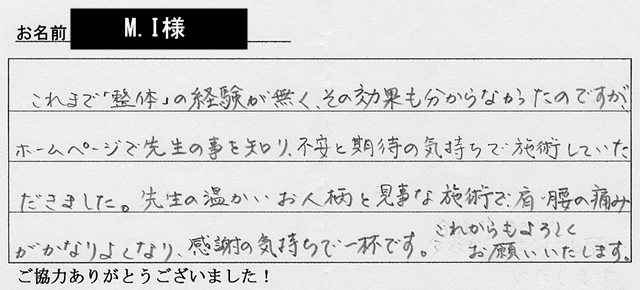 お名前 M.I様
これまで「整体」の経験が無く、その効果も分からなかったのですが、
ホームページで先生の事を知り、不安と期待の気持ちで施術していた
だきました。先生の温かいお人柄と見事な施術で、肩・腰の痛み
がかなりよくなり、感謝の気持ちで一杯です。これからもよろしく
お願いいたします。
ご協力ありがとうございました！